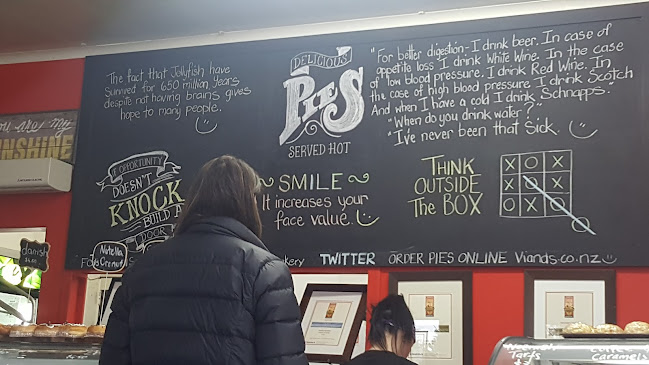 The fact that Jellyfish have
Survived for 650 million years
despite not having brains gives
hope to many people.
DELICIOUS
PIES
SERVED HOT
"For better digestion - I drink beer. In case of
appetite loss I drink White Wine. In the case
of low blood pressure. I drink Red Wine. In
the case of high blood pressure I drink Scotch
And when I have a cold I drink Schnapps.
"When do you drink water?"
"I've never been that sick.
You are my
SUNSHINE
IF OPPORTUNITY
DOESN'T
KNOCK
BUILD A
DOOR
~ SMILE ~
It increases your
face value.
THINK
OUTSIDE
The BOX
X O X
X O X
X O
danish
Nutella
TWITTER
ORDER PIES ONLINE Viands.co.nz
Tarts
Caramels